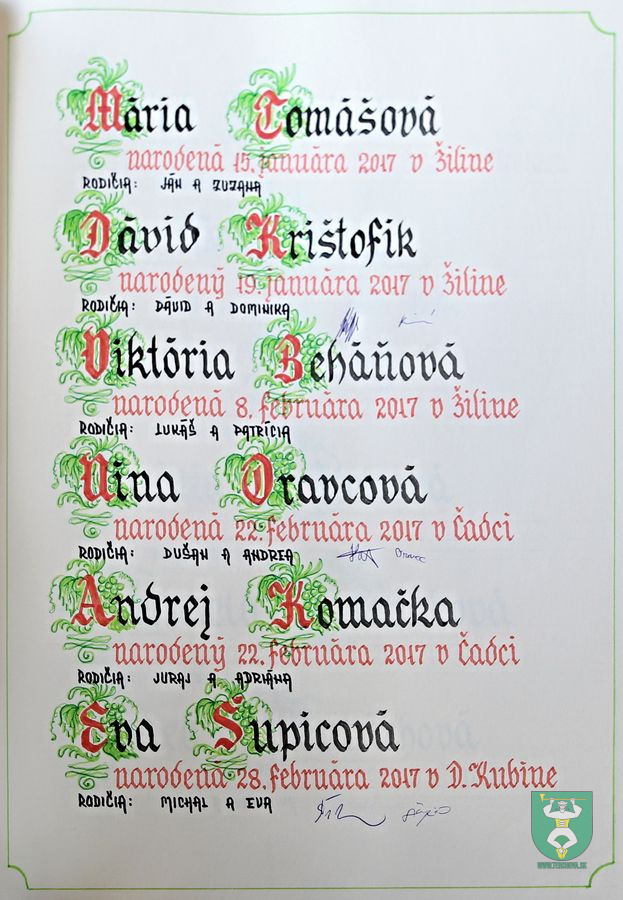 Mária Tomášová
narodená 15. januára 2017 v Žiline
RODIČIA: JÁN A ZUZANA
Dávid Krištofik
narodený 19. januára 2017 v Žiline
RODIČIA: DÁVID A DOMINIKA
Viktória Beháňová
narodená 8. februára 2017 v Žiline
RODIČIA: LUKÁŠ A PATRÍCIA
Nina Oravcová
narodená 22. februára 2017 v Čadci
RODIČIA: DUŠAN A ANDREA Oravec
Andrej Komačka
narodený 22. februára 2017 v Čadci
RODIČIA: JURAJ A ADRIÁNA
Eva Šupicová
narodená 28. februára 2017 v D. Kubíne
RODIČIA: MICHAL A EVA
WWW.TERCHOVA.SK